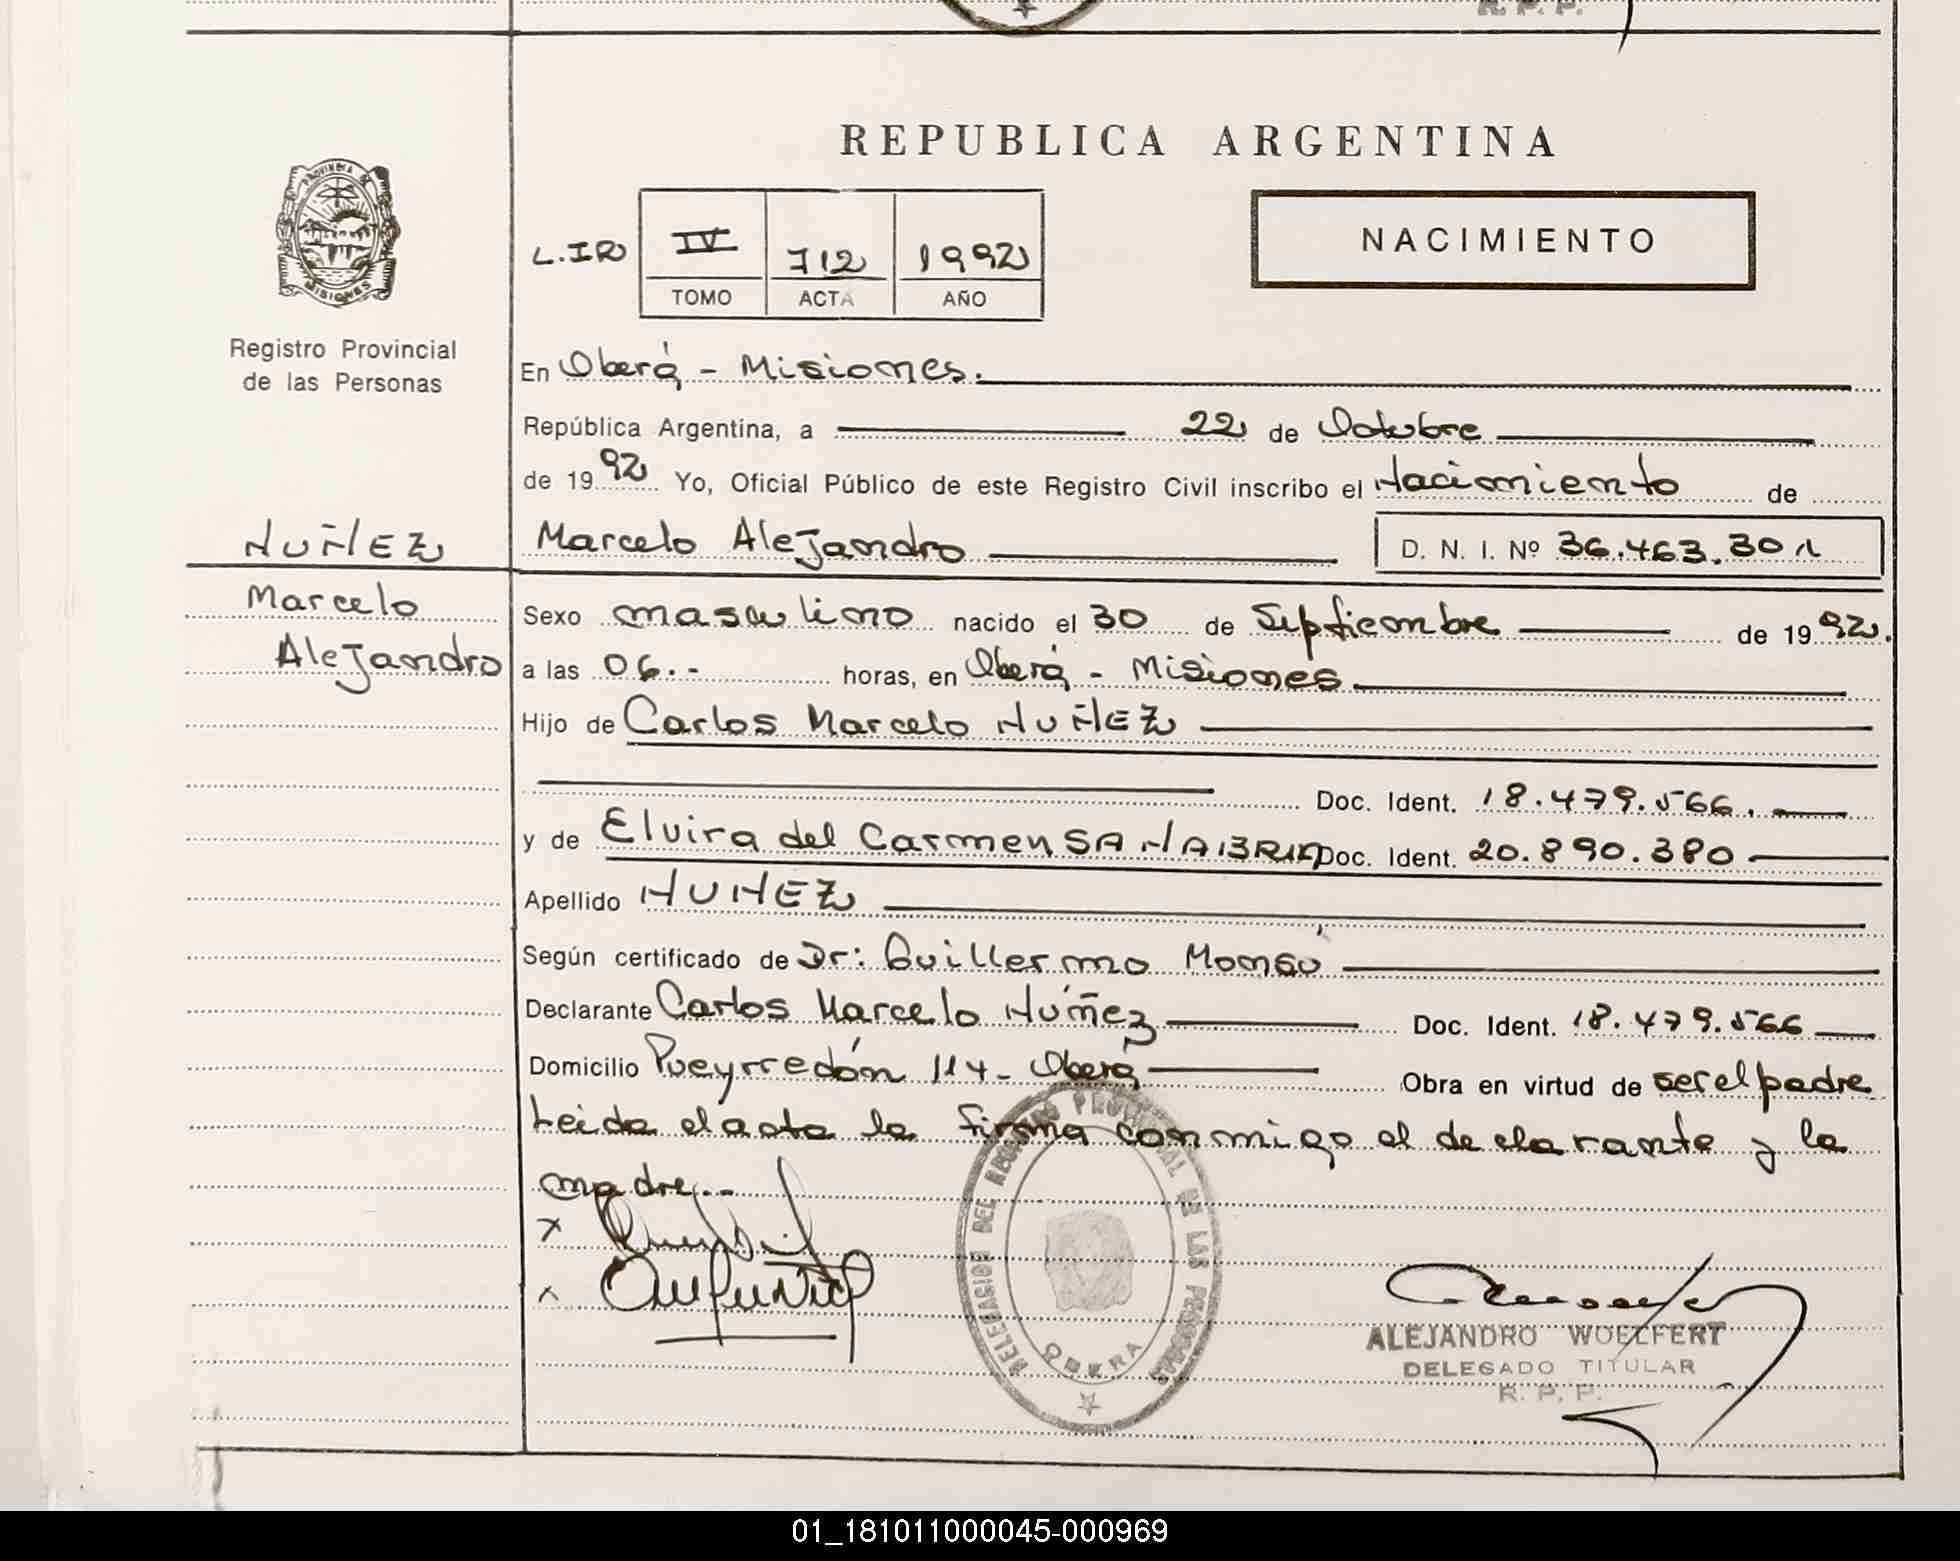 R. P. P.
REPUBLICA ARGENTINA
PROVINCIA DE
MISIONES
Registro Provincial
de las Personas
L.IR IV 712 1992
TOMO ACTA AÑO
NACIMIENTO
En Oberá - Misiones.
República Argentina, a 22 de Octubre
de 1992 Yo, Oficial Público de este Registro Civil inscribo el Nacimiento de
NUÑEZ
Marcelo Alejandro D. N. I. Nº 36.463.301
Marcelo
Alejandro
Sexo masculino nacido el 30 de Septiembre de 1992.
a las 06.- horas, en Oberá - Misiones
Hijo de Carlos Marcelo NUÑEZ
Doc. Ident. 18.479.566.
y de Elvira del Carmen SANABRIA Doc. Ident. 20.890.380
Apellido NUÑEZ
Según certificado de Dr: Guillermo Monsú
Declarante Carlos Marcelo Núñez Doc. Ident. 18.479.566
Domicilio Pueyrredón 114 - Oberá Obra en virtud de ser el padre
Leida el acta la firma conmigo el declarante y la
madre.-
x
x
DELEGACION DEL REGISTRO PROVINCIAL DE LAS PERSONAS
OBERA
ALEJANDRO WOELFERT
DELEGADO TITULAR
R. P. P.
01_181011000045-000969